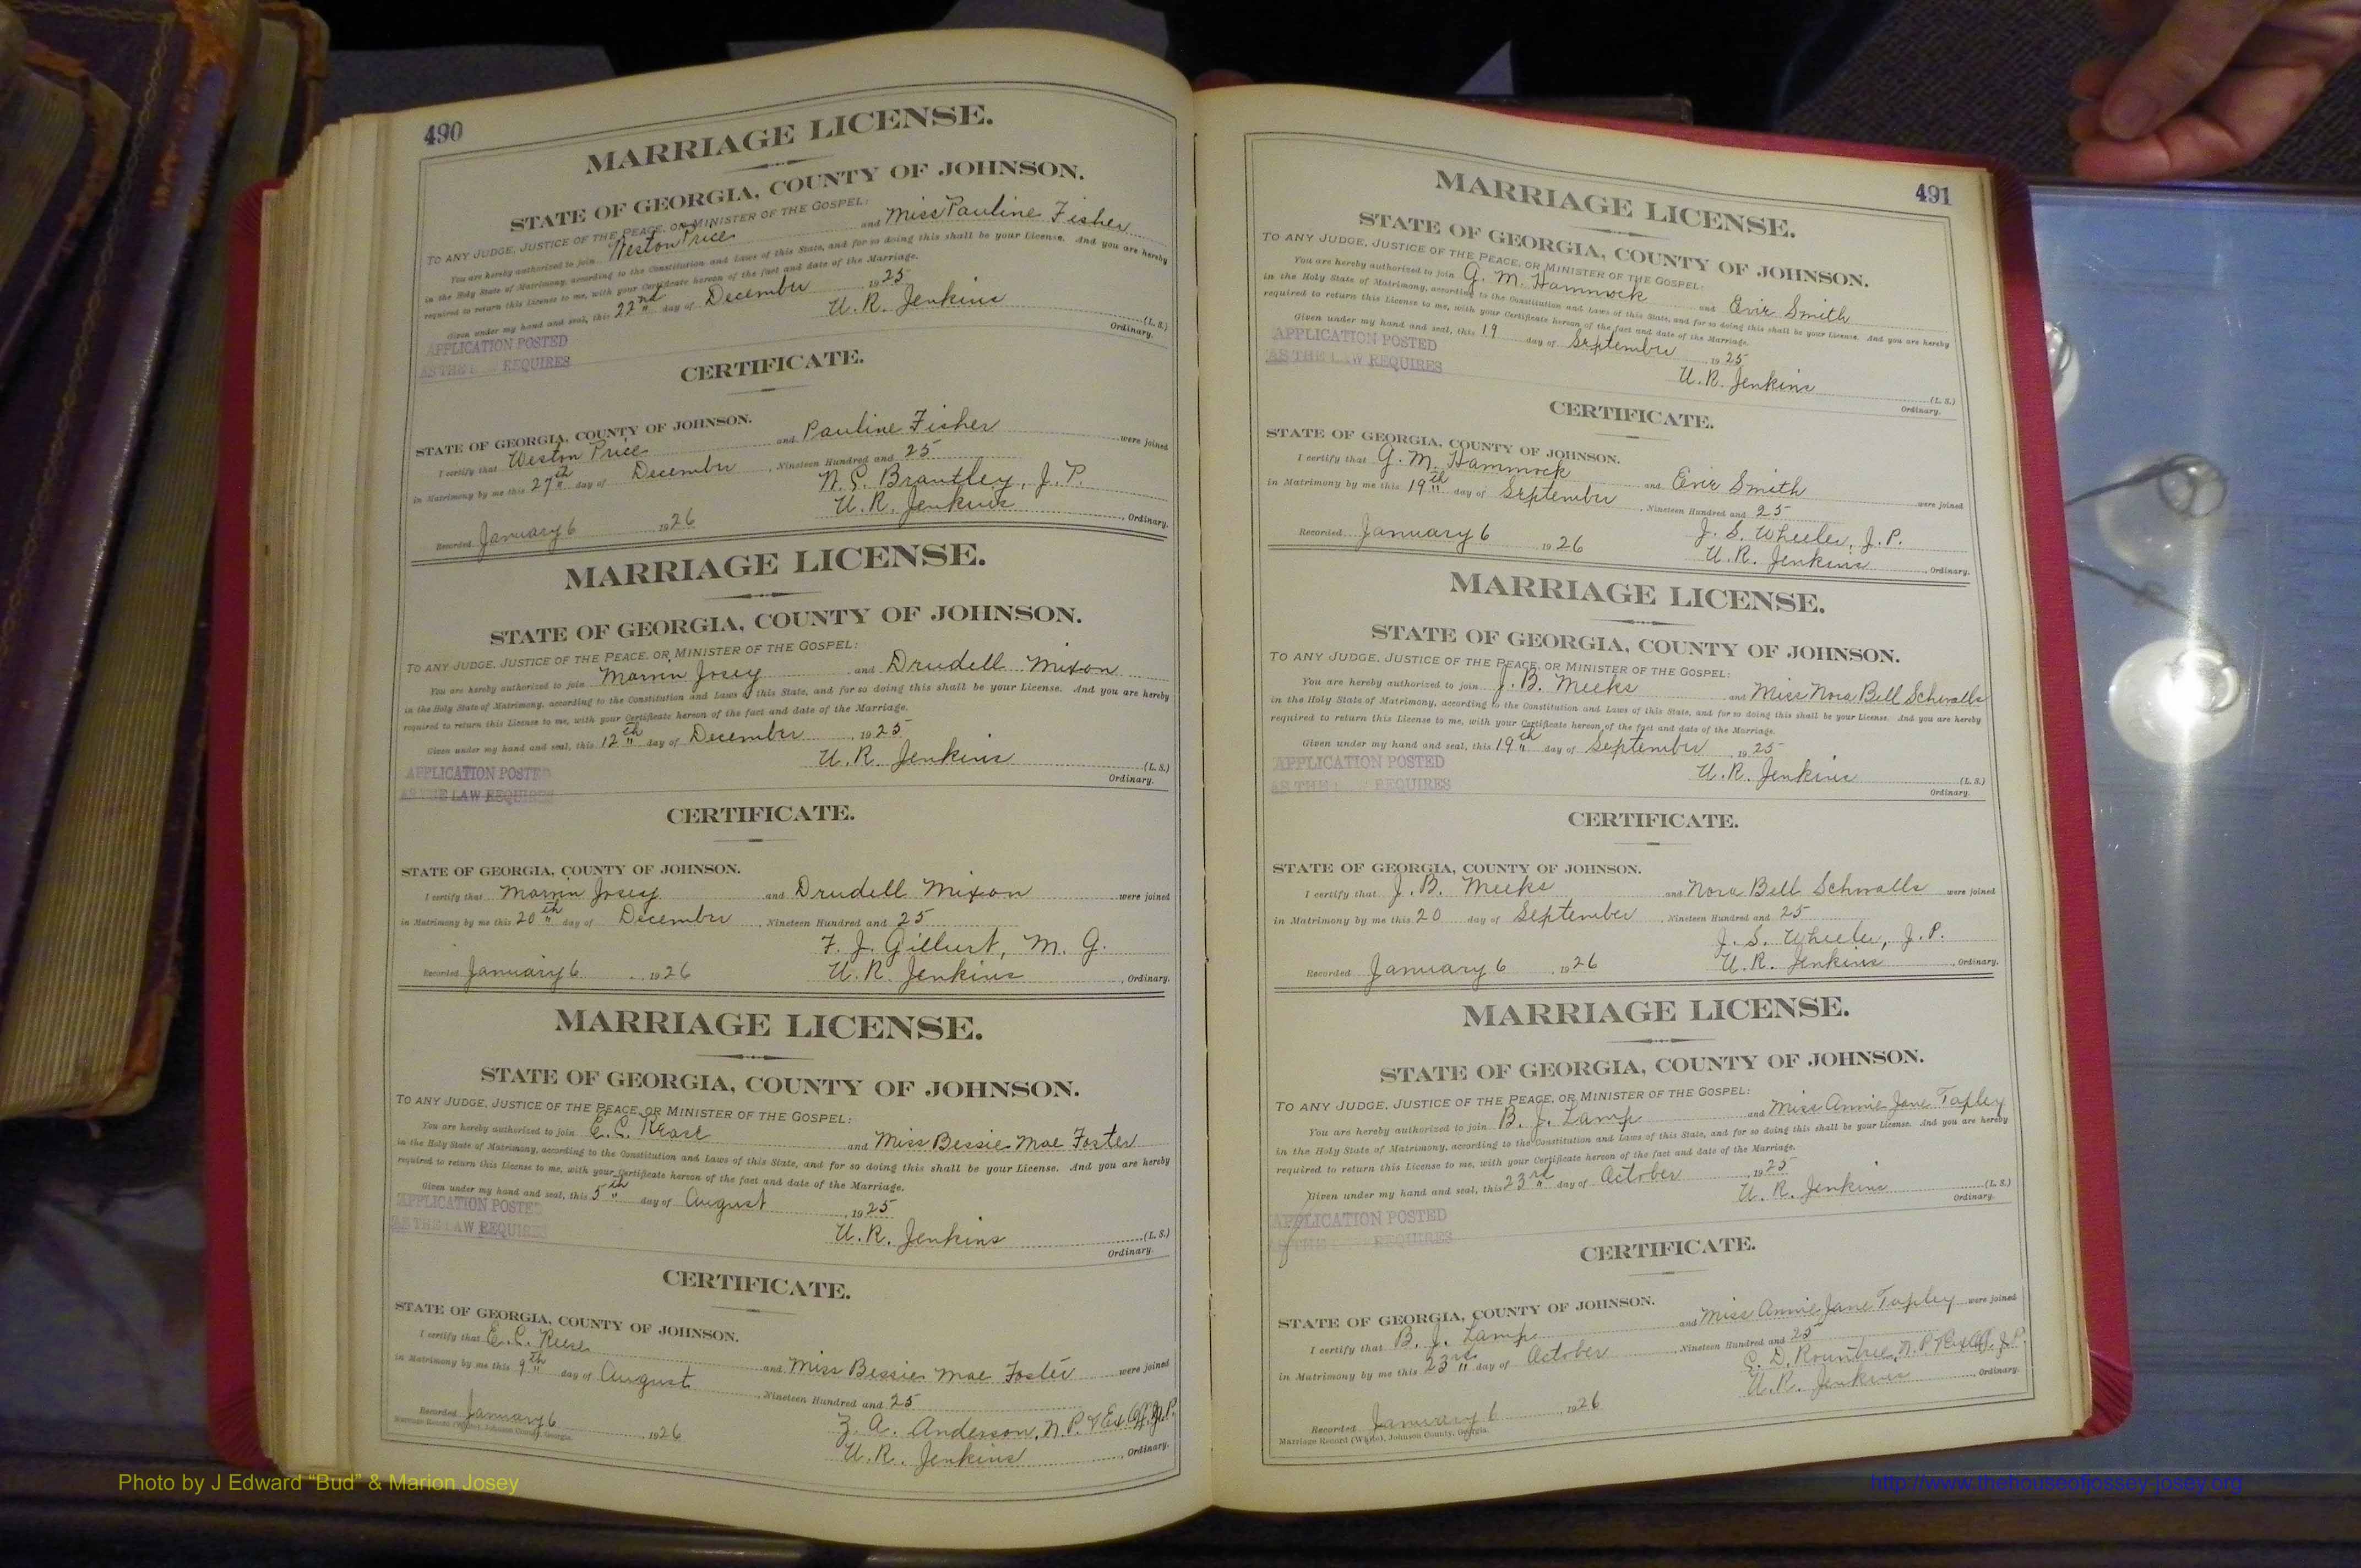 490
MARRIAGE LICENSE.
STATE OF GEORGIA, COUNTY OF JOHNSON.
TO ANY JUDGE, JUSTICE OF THE PEACE, OR MINISTER OF THE GOSPEL:
You are hereby authorized to join Weston Price and Miss Pauline Fisher
in the Holy State of Matrimony, according to the Constitution and Laws of this State, and for so doing this shall be your License. And you are hereby
required to return this License to me, with your Certificate hereon of the fact and date of the Marriage.
Given under my hand and seal, this 22nd day of December 1925
U. R. Jenkins (L. S.)
Ordinary.
APPLICATION POSTED
AS THE REQUIRES
CERTIFICATE.
STATE OF GEORGIA, COUNTY OF JOHNSON.
I certify that Weston Price and Pauline Fisher were joined
in Matrimony by me this 27th day of December, Nineteen Hundred and 25
N. C. Brantley, J. P.
Recorded January 6 1926 U. R. Jenkins, Ordinary.
MARRIAGE LICENSE.
STATE OF GEORGIA, COUNTY OF JOHNSON.
TO ANY JUDGE, JUSTICE OF THE PEACE, OR MINISTER OF THE GOSPEL:
You are hereby authorized to join Marvin Josey and Drudell Mixon
in the Holy State of Matrimony, according to the Constitution and Laws of this State, and for so doing this shall be your License. And you are hereby
required to return this License to me, with your Certificate hereon of the fact and date of the Marriage.
Given under my hand and seal, this 12th day of December, 1925
U. R. Jenkins (L. S.)
Ordinary.
APPLICATION POSTED
AS THE LAW REQUIRES
CERTIFICATE.
STATE OF GEORGIA, COUNTY OF JOHNSON.
I certify that Marvin Josey and Drudell Mixon were joined
in Matrimony by me this 20th day of December, Nineteen Hundred and 25
F. J. Gilbert, M. G.
Recorded January 6 1926 U. R. Jenkins, Ordinary.
MARRIAGE LICENSE.
STATE OF GEORGIA, COUNTY OF JOHNSON.
TO ANY JUDGE, JUSTICE OF THE PEACE, OR MINISTER OF THE GOSPEL:
You are hereby authorized to join E. C. Rease and Miss Bessie Mae Foster
in the Holy State of Matrimony, according to the Constitution and Laws of this State, and for so doing this shall be your License. And you are hereby
required to return this License to me, with your Certificate hereon of the fact and date of the Marriage.
Given under my hand and seal, this 5th day of August, 1925
U. R. Jenkins (L. S.)
Ordinary.
APPLICATION POSTED
AS THE LAW REQUIRES
CERTIFICATE.
STATE OF GEORGIA, COUNTY OF JOHNSON.
I certify that E. C. Reese and Miss Bessie Mae Foster were joined
in Matrimony by me this 9th day of August, Nineteen Hundred and 25
Z. A. Anderson, N. P. & Ex Off. J. P.
Recorded January 6 1926 U. R. Jenkins, Ordinary.
Marriage Record (White), Johnson County, Georgia.
491
MARRIAGE LICENSE.
STATE OF GEORGIA, COUNTY OF JOHNSON.
TO ANY JUDGE, JUSTICE OF THE PEACE, OR MINISTER OF THE GOSPEL:
You are hereby authorized to join G. M. Hammock and Evie Smith
in the Holy State of Matrimony, according to the Constitution and Laws of this State, and for so doing this shall be your License. And you are hereby
required to return this License to me, with your Certificate hereon of the fact and date of the Marriage.
Given under my hand and seal, this 19 day of September 1925
U. R. Jenkins (L. S.)
Ordinary.
APPLICATION POSTED
AS THE LAW REQUIRES
CERTIFICATE.
STATE OF GEORGIA, COUNTY OF JOHNSON.
I certify that G. M. Hammock and Evie Smith were joined
in Matrimony by me this 19th day of September, Nineteen Hundred and 25
J. S. Wheeler, J. P.
Recorded January 6 1926 U. R. Jenkins, Ordinary.
MARRIAGE LICENSE.
STATE OF GEORGIA, COUNTY OF JOHNSON.
TO ANY JUDGE, JUSTICE OF THE PEACE, OR MINISTER OF THE GOSPEL:
You are hereby authorized to join J. B. Meeks and Miss Nora Bell Schwalls
in the Holy State of Matrimony, according to the Constitution and Laws of this State, and for so doing this shall be your License. And you are hereby
required to return this License to me, with your Certificate hereon of the fact and date of the Marriage.
Given under my hand and seal, this 19th day of September 1925
U. R. Jenkins (L. S.)
Ordinary.
APPLICATION POSTED
AS THE REQUIRES
CERTIFICATE.
STATE OF GEORGIA, COUNTY OF JOHNSON.
I certify that J. B. Meeks and Nora Bell Schwalls were joined
in Matrimony by me this 20 day of September, Nineteen Hundred and 25
J. S. Wheeler, J. P.
Recorded January 6, 1926 U. R. Jenkins, Ordinary.
MARRIAGE LICENSE.
STATE OF GEORGIA, COUNTY OF JOHNSON.
TO ANY JUDGE, JUSTICE OF THE PEACE, OR MINISTER OF THE GOSPEL:
You are hereby authorized to join B. J. Lamp and Miss Annie Jane Tapley
in the Holy State of Matrimony, according to the Constitution and Laws of this State, and for so doing this shall be your License. And you are hereby
required to return this License to me, with your Certificate hereon of the fact and date of the Marriage.
Given under my hand and seal, this 23rd day of October, 1925
U. R. Jenkins (L. S.)
Ordinary.
APPLICATION POSTED
AS THE REQUIRES
CERTIFICATE.
STATE OF GEORGIA, COUNTY OF JOHNSON.
I certify that B. J. Lamp and Miss Annie Jane Tapley were joined
in Matrimony by me this 23rd day of October, Nineteen Hundred and 25
E. D. Rountree, N. P. & Ex Off. J. P.
Recorded January 6 1926 U. R. Jenkins, Ordinary.
Marriage Record (White), Johnson County, Georgia.
Photo by J Edward “Bud” & Marion Josey
http://www.thehouseofjossey-josey.org